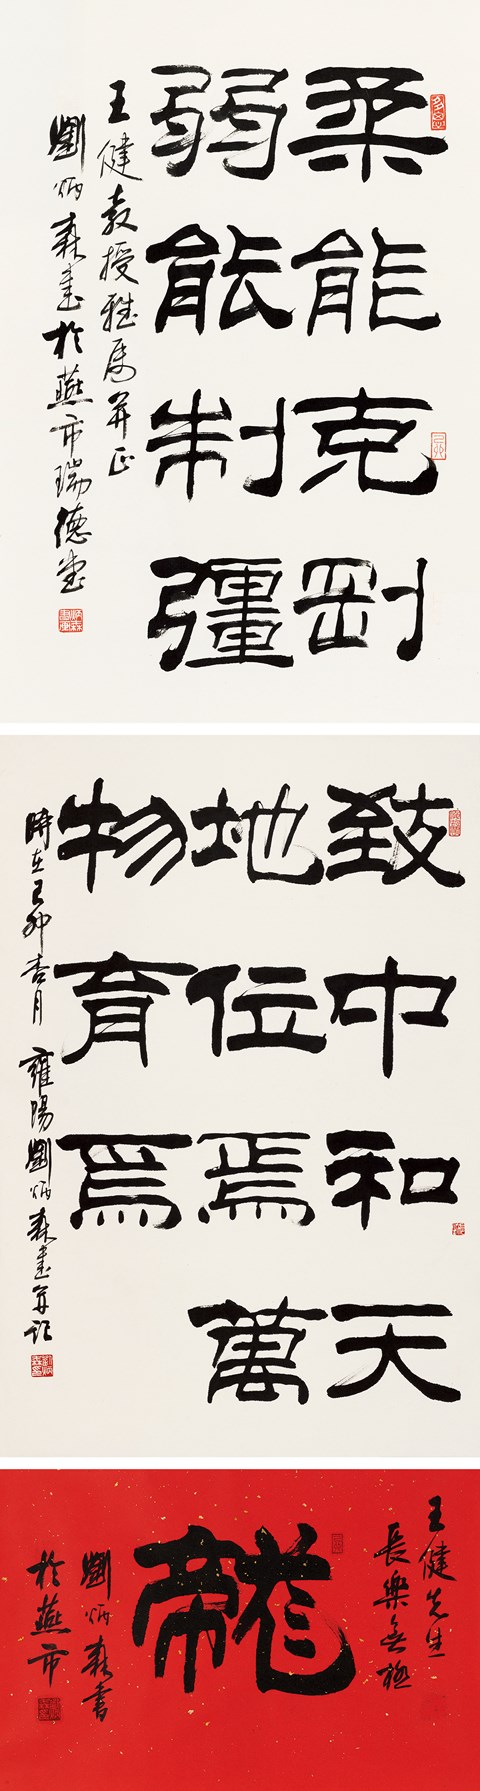 柔能克剛
弱能制彊
王健教授雅属并正
劉炳森書於燕市瑞德堂
致中和天
地位焉萬
物育焉
時在己卯杏月 雍陽劉炳森書并記
王健先生
長樂無極
龍
劉炳森書
於燕市